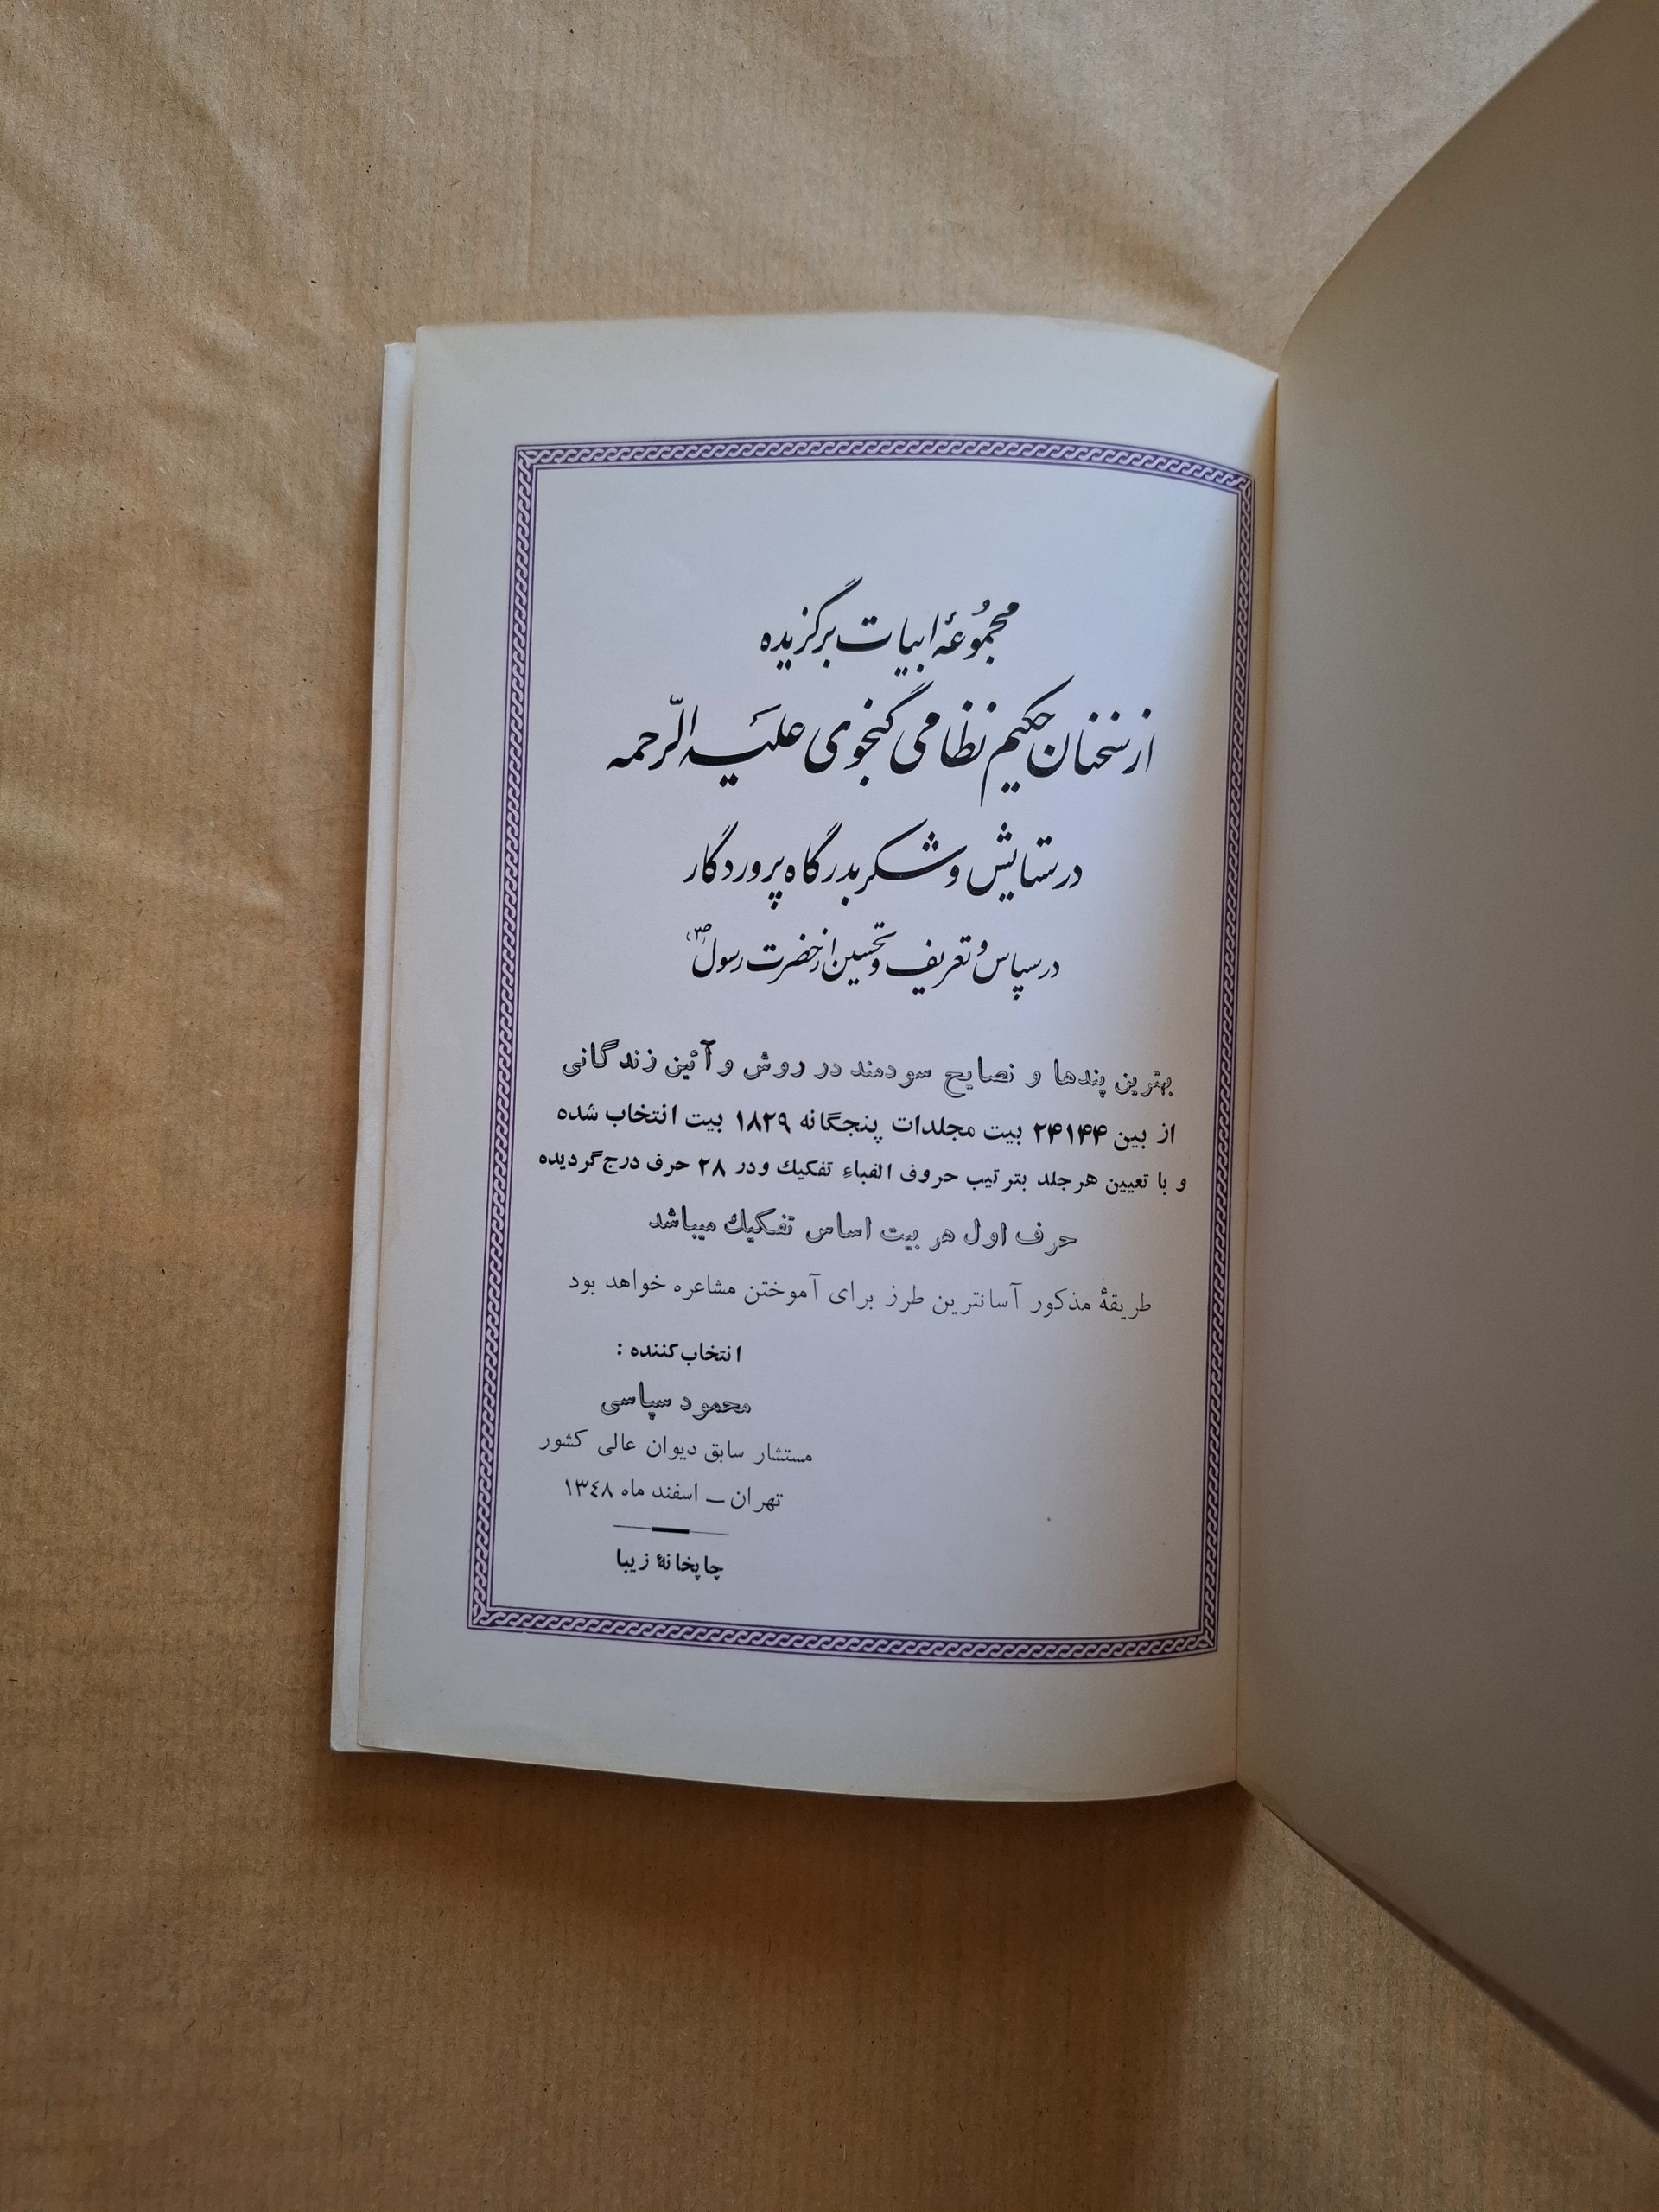 مجمُوعهٔ ابیات برگزیده
از سخنان حکیم نظامی گنجوی علیَه الرّحمه
در ستایش و شکر بدرگاه پروردگار
در سپاس و تعریف و تحسین از حضرت رسول (ص)
بهترین پندها و نصایح سودمند در روش و آئین زندگانی
از بین ۲۴۱۴۴ بیت مجلدات پنجگانه ۱۸۲۹ بیت انتخاب شده
و با تعیین هر جلد بترتیب حروف الفباء تفکیك و در ۲۸ حرف درج گردیده
حرف اول هر بیت اساس تفکیك میباشد
طریقهٔ مذکور آسانترین طرز برای آموختن مشاعره خواهد بود
انتخاب کننده :
محمود سپاسی
مستشار سابق دیوان عالی کشور
تهران ــ اسفند ماه ۱۳٤۸
چاپخانهٔ زیبا